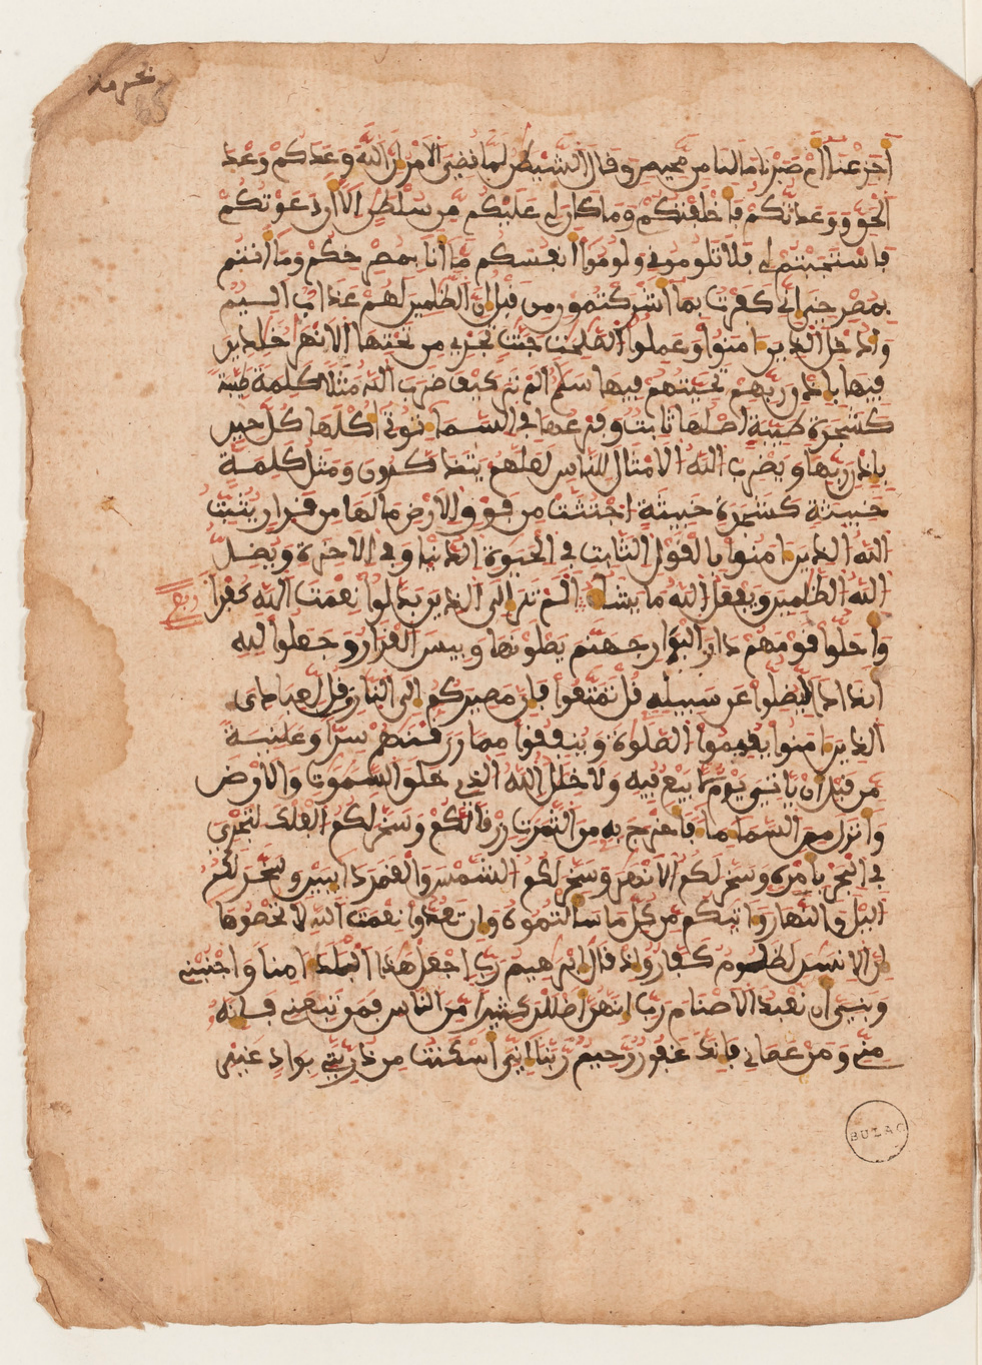 أجزعنا أم صبرنا ما لنا من محيص وقال الشيطن لما قضي الامر ان الله وعدكم وعد
الحق ووعدتكم فأخلفتكم وما كان لي عليكم من سلطن الا أن دعوتكم
فاستجبتم لي فلا تلوموني ولوموا أنفسكم ما أنا بمصرخكم وما أنتم
بمصرخي إني كفرت بما أشركتمون من قبل إن الظلمين لهم عذاب اليم
وأدخل الذين ءامنوا وعملوا الصلحت جنت تجري من تحتها الانهر خلدين
فيها بإذن ربهم تحيتهم فيها سلم الم تر كيف ضرب الله مثلا كلمة طيبة
كشجرة طيبة اصلها ثابت وفرعها في السماء توتي أكلها كل حين
بإذن ربها ويضرب الله الامثال للناس لعلهم يتذكرون ومثل كلمة
خبيثة كشجرة خبيثة اجتثت من فوق الارض ما لها من قرار يثبت
الله الذين ءامنوا بالقول الثابت في الحيوة الدنيا وفي الاخرة ويضل
الله الظلمين ويفعل الله ما يشاء الم تر الى الذين بدلوا نعمت الله كفرا
ربع
وأحلوا قومهم دار البوار جهنم يصلونها وبيس القرار وجعلوا لله
أندادا ليضلوا عن سبيله قل تمتعوا فإن مصيركم إلى النار قل لعبادي
الذين ءامنوا يقيموا الصلوة وينفقوا مما رزقنهم سرا وعلنية
من قبل أن ياتي يوم لا بيع فيه ولا خلل الله الذي خلق السموت والارض
وأنزل من السماء ماء فأخرج به من الثمرت رزقا لكم وسخر لكم الفلك لتجري
في البحر بأمره وسخر لكم الانهر وسخر لكم الشمس والقمر دائبين وسخر لكم
اليل والنهار وءاتيكم من كل ما سألتموه وإن تعدوا نعمت الله لا تحصوها
إن الانسن لظلوم كفار وإذ قال ابرهيم رب اجعل هذا البلد ءامنا واجنبني
وبني أن نعبد الاصنام رب إنهن أضللن كثيرا من الناس فمن تبعني فإنه
مني ومن عصاني فإنك غفور رحيم ربنا إني أسكنت من ذريتي بواد غير
BULAC